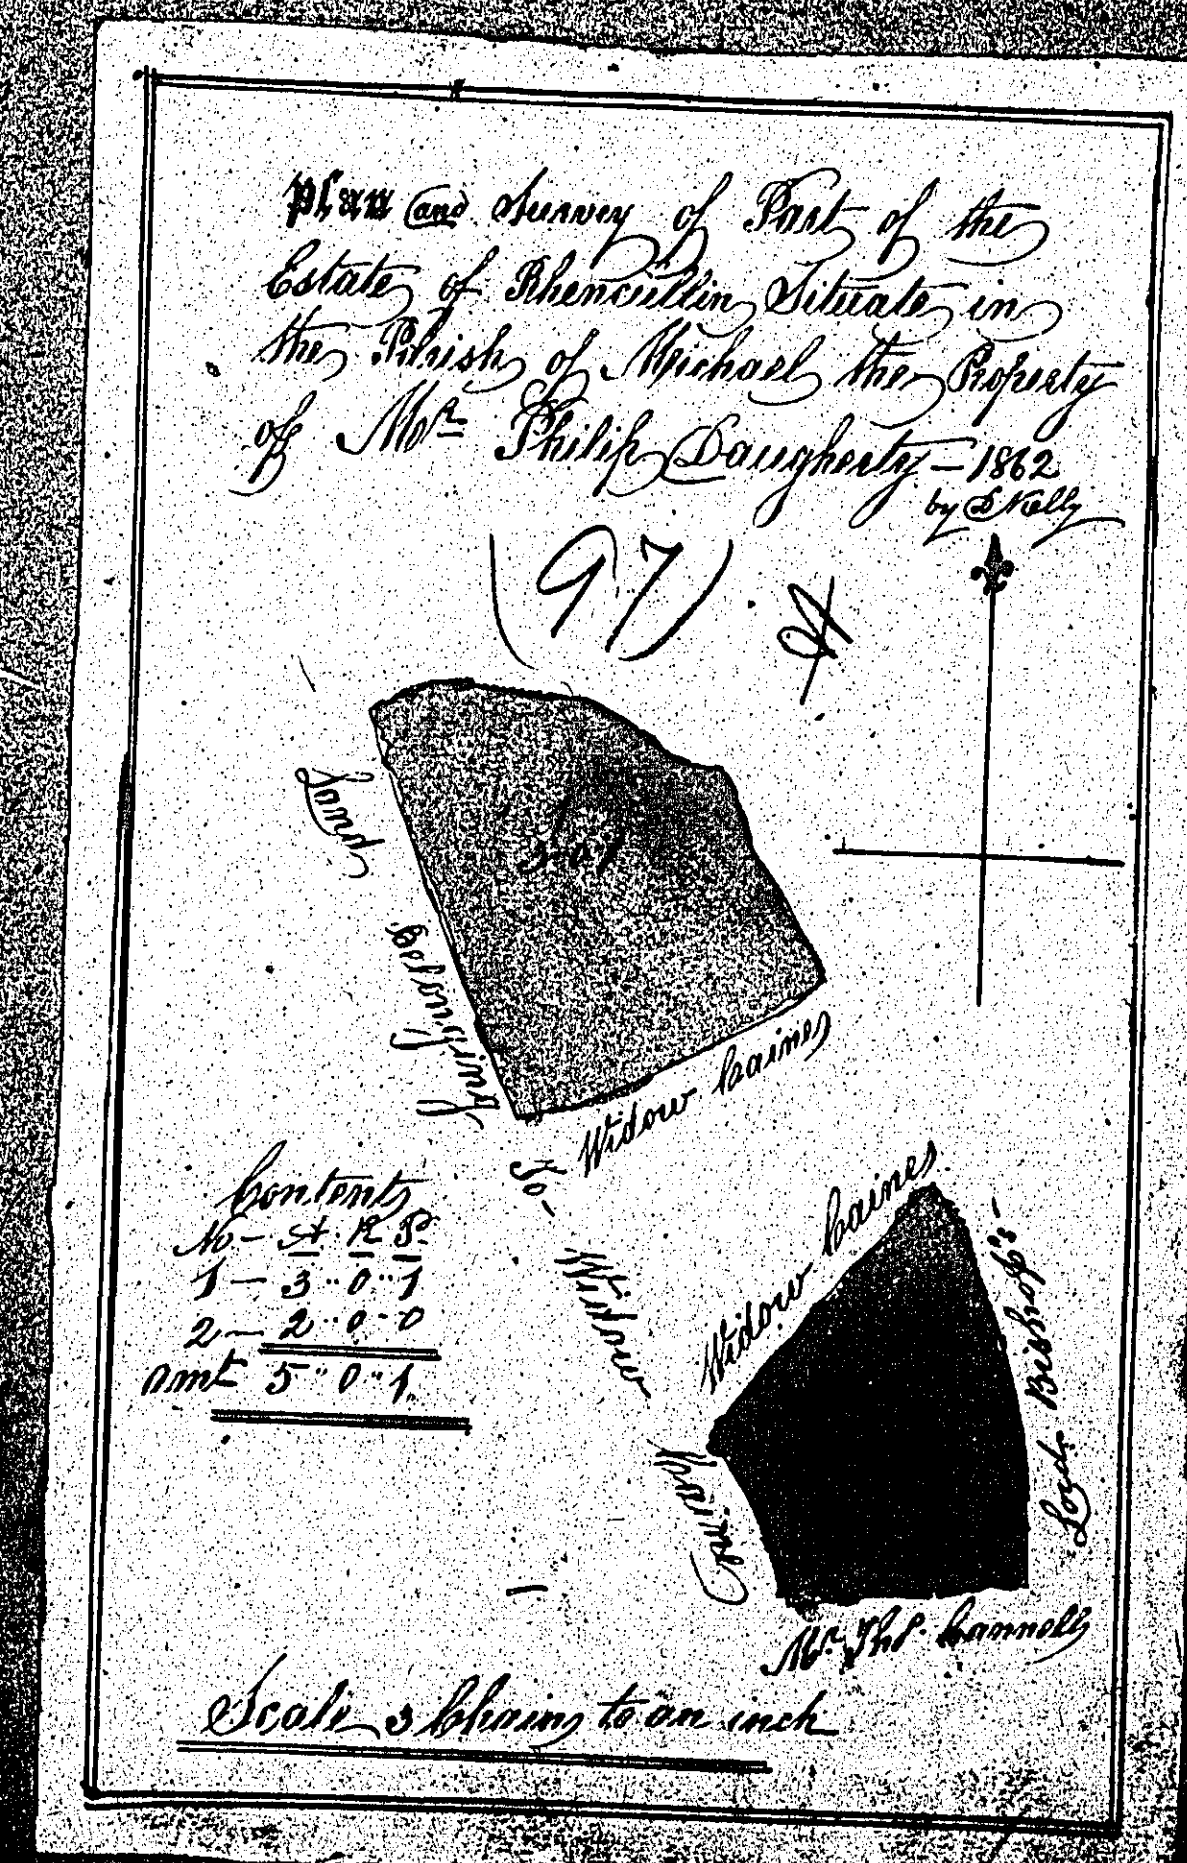 Plan and Survey of Part of the
Estate of Rhencullin Situate in
the Parish of Michael the Property
of Mr Philip Daugherty - 1862
by Kelly
(97)
3 - 0 - 1
Land belonging To - Widow Caines
Widow Caines
Widow Caines
Lord Bishops -
Mr. Thos. Cannells
Contents
No - A R P
1 - 3 " 0 " 1
2 - 2 " 0 - 0
amt 5 " 0 " 1
Scale 3 Chains to an inch